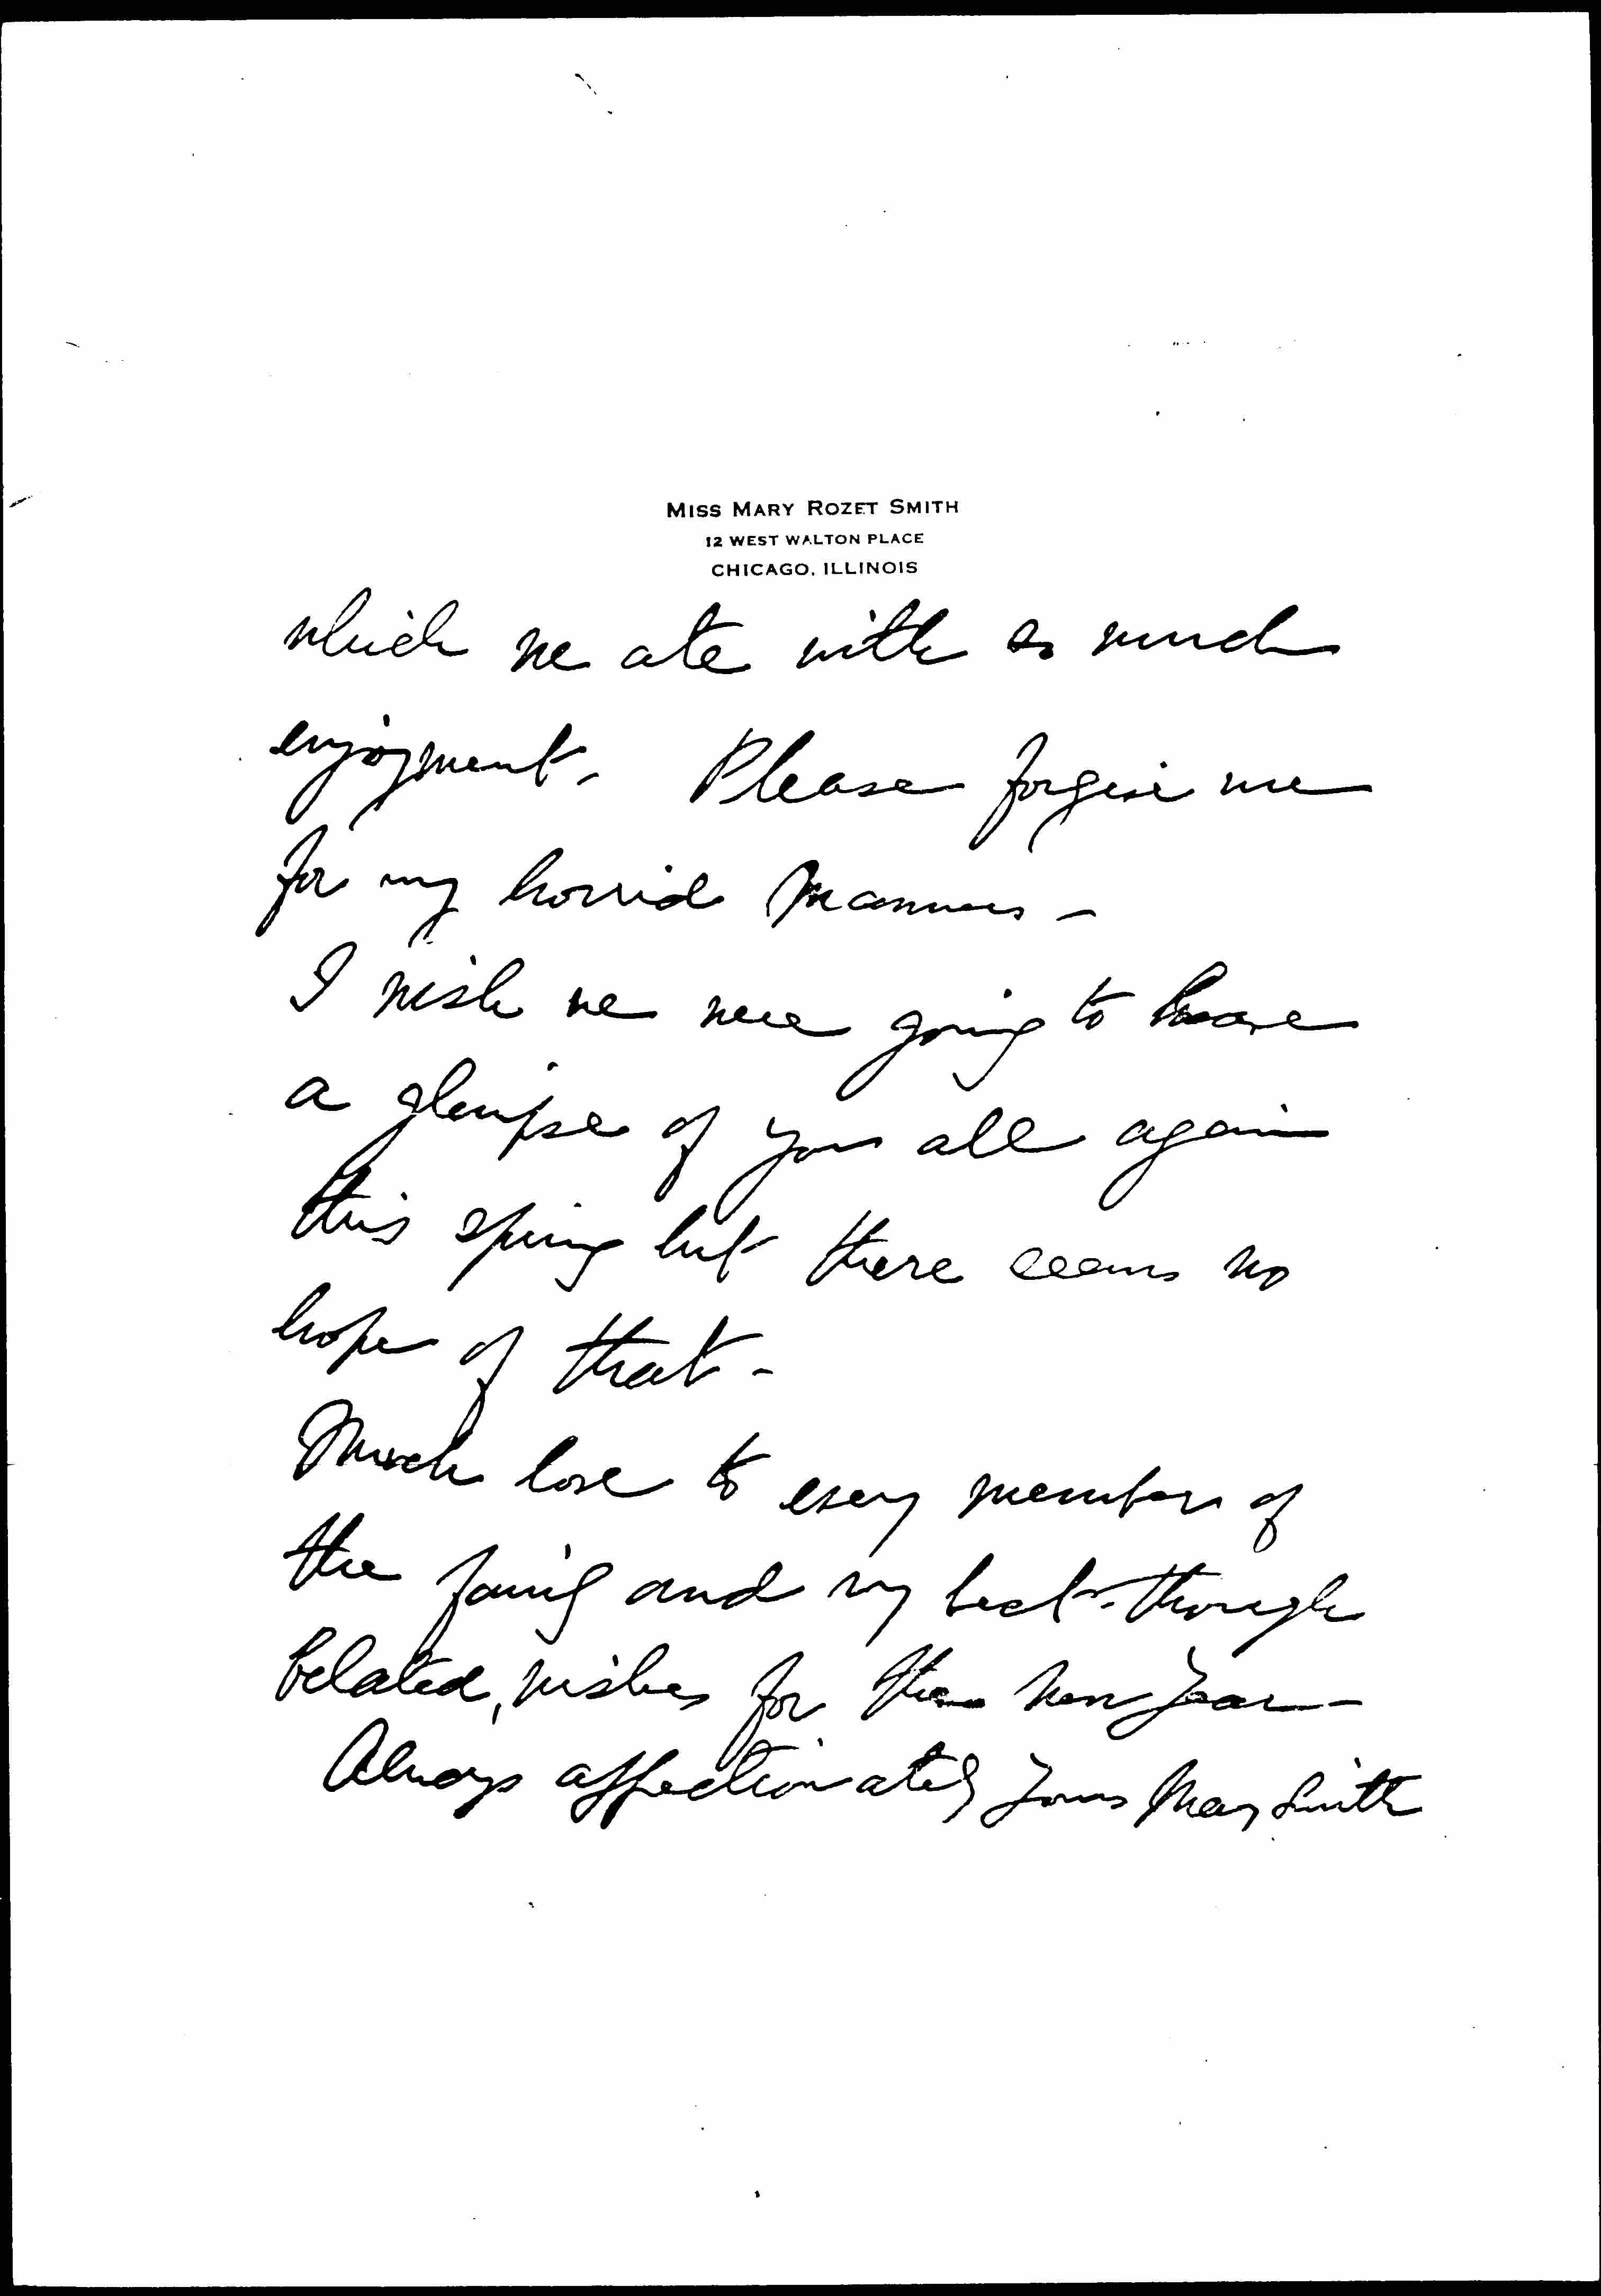 MISS MARY ROZET SMITH
12 WEST WALTON PLACE
CHICAGO, ILLINOIS
which we ate with so much
enjoyment. Please forgive me
for my horrid manners -
I wish we were going to have
a glimpse of you all again
this spring but there seems no
hope of that -
Much love to every member of
the family and my best - though
belated, wishes for the new year -
Always affectionately yours Mary Smith